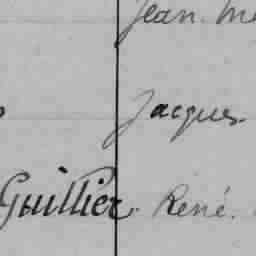 Jean
Jacques
Guillier René.